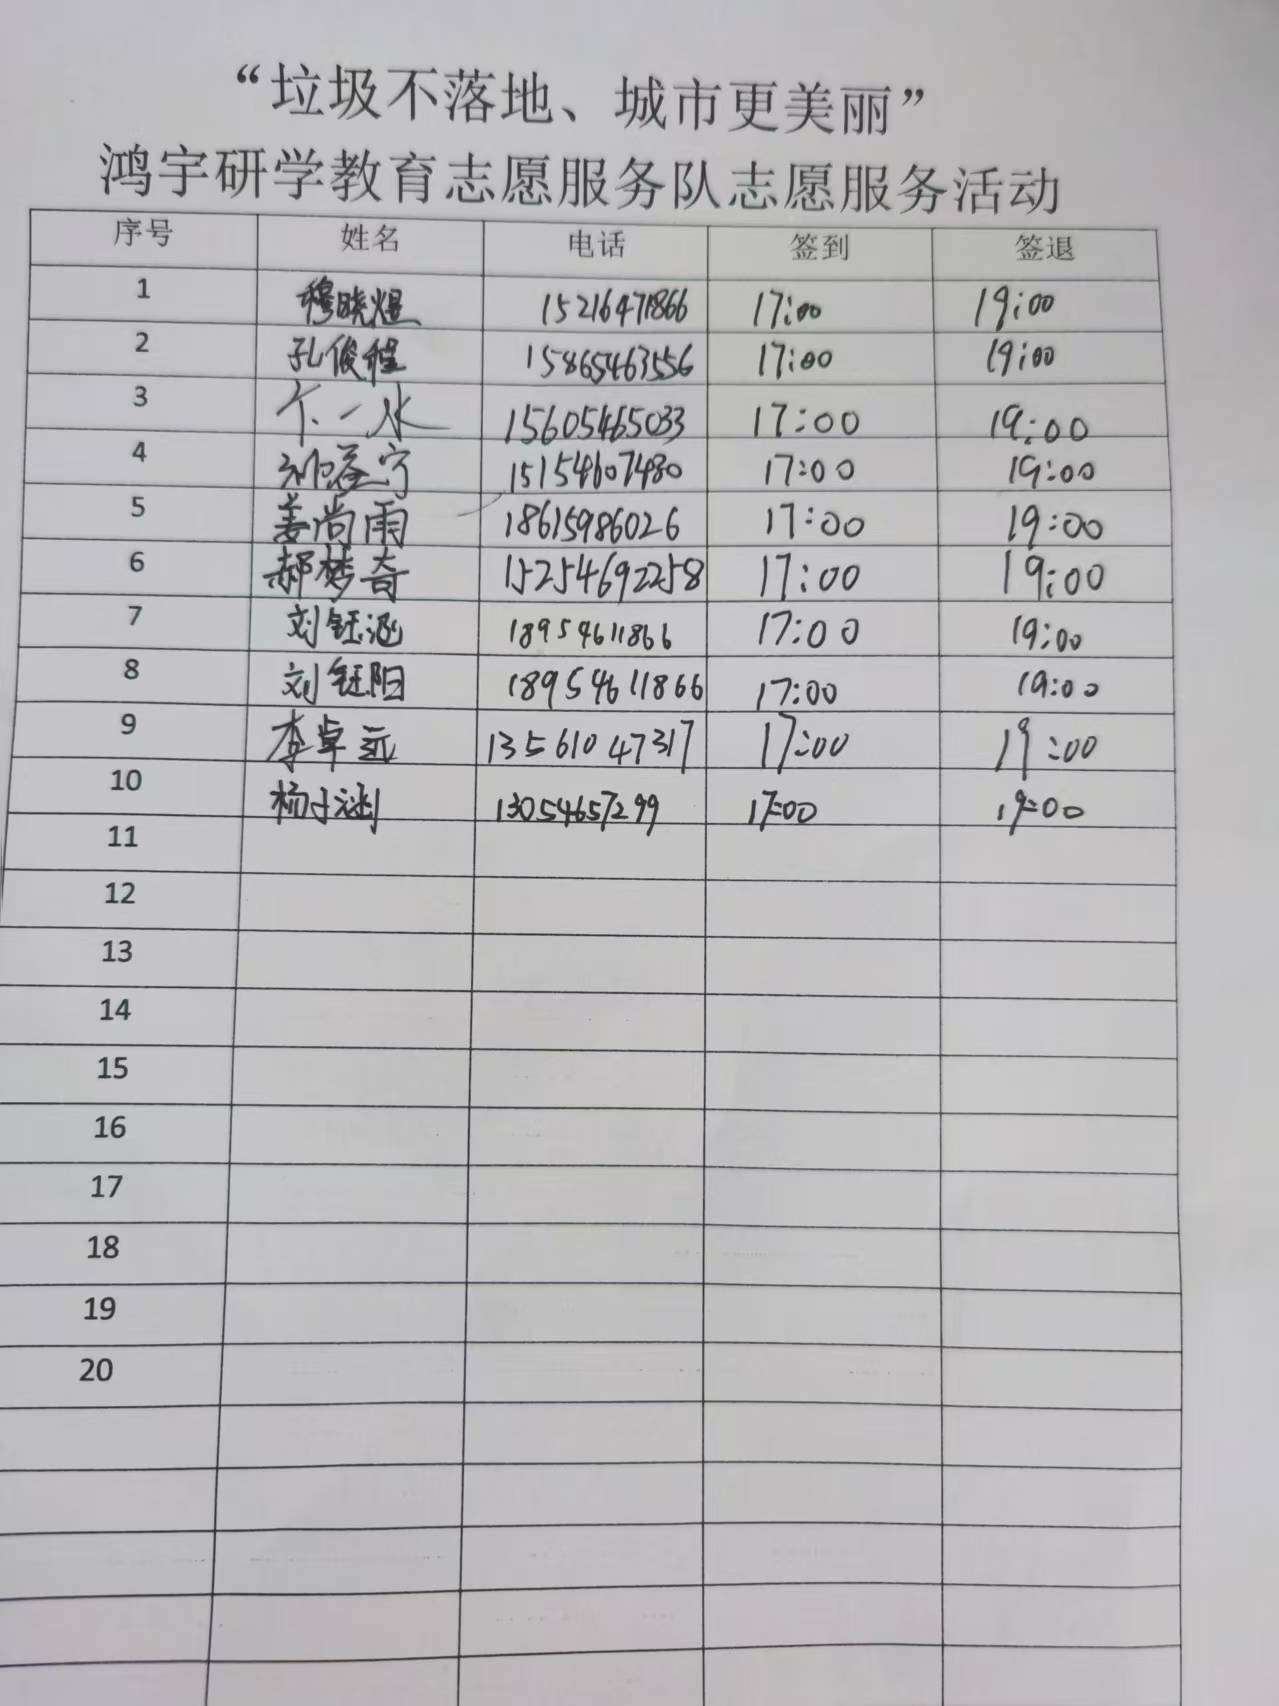 “垃圾不落地、城市更美丽”
鸿宇研学教育志愿服务队志愿服务活动
序号 姓名 电话 签到 签退
1 穆晓煜 15216471866 17:00 19:00
2 孔俊程 15865463556 17:00 19:00
3 15605465033 17:00 19:00
4 15154607480 17:00 19:00
5 姜尚雨 18615986026 17:00 19:00
6 郝梦奇 15254692258 17:00 19:00
7 刘钰涵 18954611866 17:00 19:00
8 刘钰阳 18954611866 17:00 19:00
9 李卓远 13561047317 17:00 19:00
10 13054657299 17:00 19:00
11
12
13
14
15
16
17
18
19
20